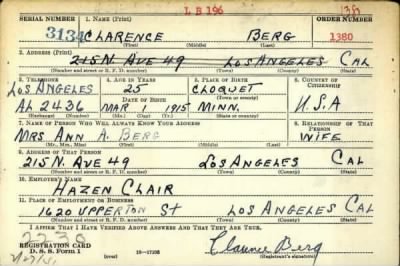 L B 196 138
SERIAL NUMBER 1. NAME (Print) ORDER NUMBER
3134 CLARENCE BERG 1380
(First) (Middle) (Last)
2. ADDRESS (Print)
215 N. AVE 49 LOS ANGELES CAL
(Number and street or R. F. D. number) (Town) (County) (State)
3. TELEPHONE 4. AGE IN YEARS 5. PLACE OF BIRTH 6. COUNTRY OF CITIZENSHIP
LOS ANGELES 25 CLOQUET
DATE OF BIRTH (Town or county)
AL 2436 MAR 1 1915 MINN. U.S.A
(Exchange) (Number) (Mo.) (Day) (Yr.) (State or country)
7. NAME OF PERSON WHO WILL ALWAYS KNOW YOUR ADDRESS 8. RELATIONSHIP OF THAT PERSON
MRS ANN A. BERG WIFE
(Mr., Mrs., Miss) (First) (Middle) (Last)
9. ADDRESS OF THAT PERSON
215 N. AVE 49 LOS ANGELES CAL
(Number and street or R. F. D. number) (Town) (County) (State)
10. EMPLOYER'S NAME
HAZEN CLAIR
11. PLACE OF EMPLOYMENT OR BUSINESS
1620 UPPERTON ST LOS ANGELES CAL
(Number and street or R. F. D. number) (Town) (County) (State)
I AFFIRM THAT I HAVE VERIFIED ABOVE ANSWERS AND THAT THEY ARE TRUE.
REGISTRATION CARD
D. S. S. Form 1 (over) Clarence Berg
(Registrant's signature)